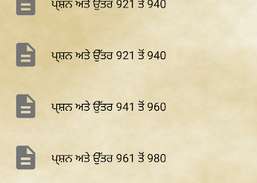 ਪ੍ਰਸ਼ਨ ਅਤੇ ਉੱਤਰ 921 ਤੋਂ 940
ਪ੍ਰਸ਼ਨ ਅਤੇ ਉੱਤਰ 921 ਤੋਂ 940
ਪ੍ਰਸ਼ਨ ਅਤੇ ਉੱਤਰ 941 ਤੋਂ 960
ਪ੍ਰਸ਼ਨ ਅਤੇ ਉੱਤਰ 961 ਤੋਂ 980